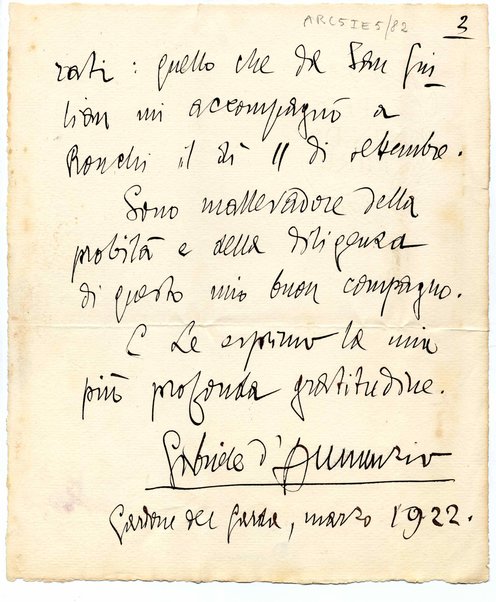 ARC5IE5/82
3
rati: quello che da San Giu-
lian mi accompagnò a
Ronchi il dì 11 di settembre.
Sono mallevadore della
probità e della diligenza
di questo mio buon compagno.
E Le esprimo la mia
più profonda gratitudine.
Gabriele d'Annunzio
Gardone del Garda, marzo 1922.